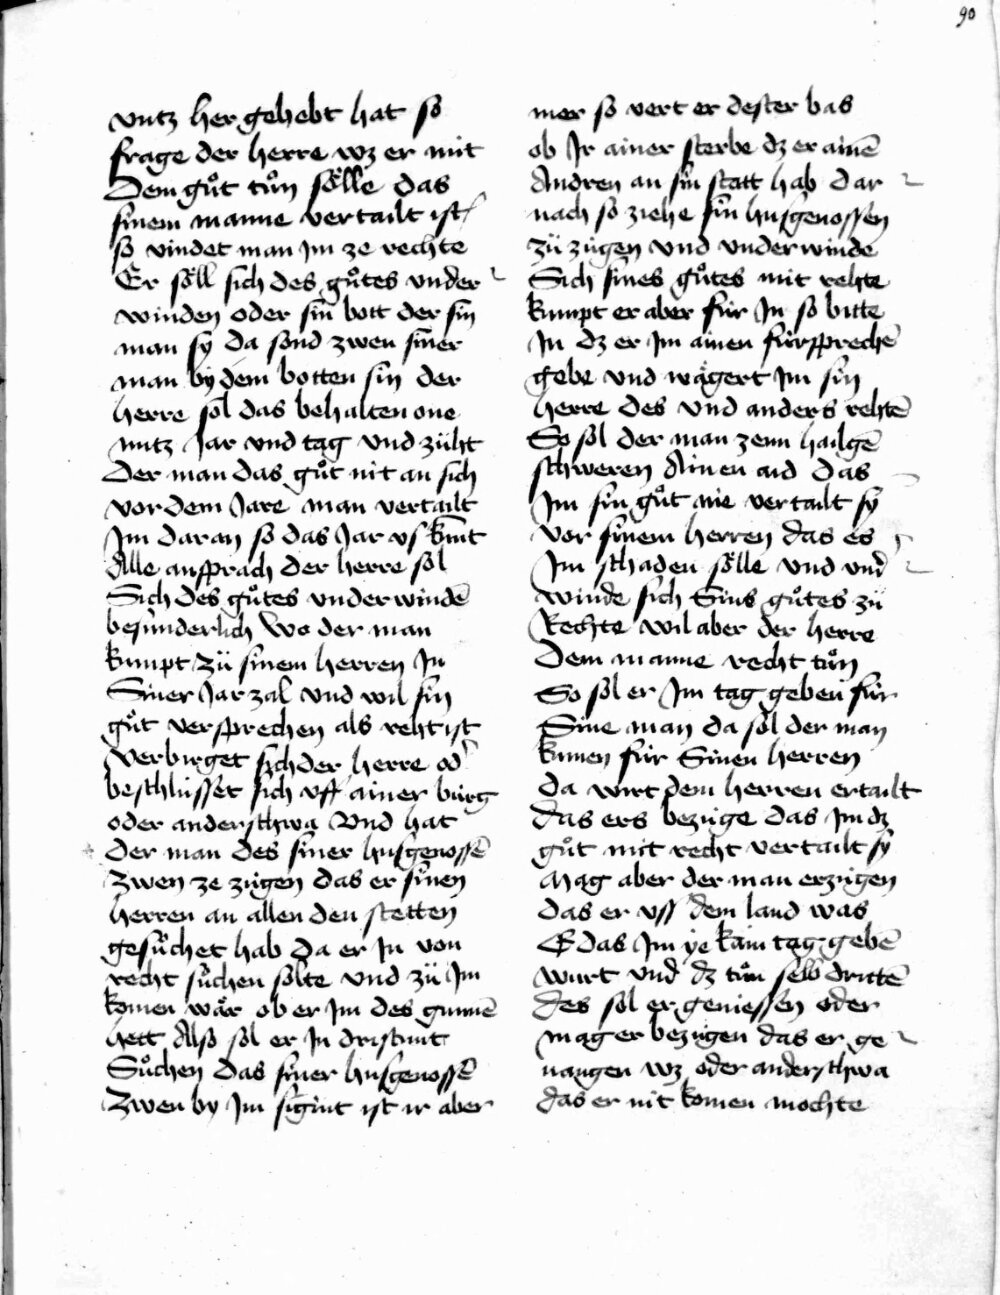 90
vntz her gehebt hat so
frage der herre wz er mit
Dem gůt tůn sölle das
sinem manne vertailt ist /
so vindet man Jm ze rechte
Er söll sich des gůtes vnder
winden oder sin bott der sin
man sy da sond zwen siner
man by dem botten sin der
herre sol das behalten one
nutz Jar vnd tag vnd züht
Der man das gůt nit an sich
vor dem Jare man vertailt
Jm daran so das Jar vs kūnt
Alle ansprach der herre sol
Sich des gůtes vnderwindē
besunderlich Wo der man
kumpt Zü sinem herren Jn
Siner Jar zal vnd wil sin
gůt versprechen als reht ist
verbirget sich der herre od'
beschlüsset sich vff ainer burg
oder anderschwa Vnd hat
der man des siner husgenossē
Zwen ze zügen das er sinen
herren an allen den stetten
gesůchet hab da er Jn von
recht sůchen solte vnd zü Jm
komen wär ob er Jm des gunnē
hett Also sol er Jn dristunt
Sůchen das siner husgenossē
Zwen by Jm sigint ist ir aber
mer so vert er dester bas
ob Jr ainer sterbe dz er ainē
Andren an sin statt hab dar
nach so ziehe sin husgenossen
zü zügen vnd vnderwinde
Sich sines gůtes mit rehte
kumpt er aber für Jn so bitte
Jn dz er Jm ainen fürsprechē
gebe vnd wägert Jm sin
herre des vnd anders rehtē
So sol der man zenn hailgē
schweren Ainen aid das
Jm sin gůt nie vertailt sy
vor sinem herren das es
Jm schaden sölle vnd vnd'
winde sich Sins gůtes zü
Rechte wil aber der herre
Dem manne recht tůn
So sol er Jm tag geben für
Sine man da sol der man
kumen für Sinen herren
da wirt dem herren ertailt
das ers bezüge das Jm dz
gůt mit recht vertailt sy
Mag aber der man erzügen
das er vss dem land was
E das Jm ye kain tag gebē
wurt vnd dz tůn selb drittē
des sol er geniessen oder
mag er bezügen das er ge
uangen wz oder anderschwa
das er nit komen mochte